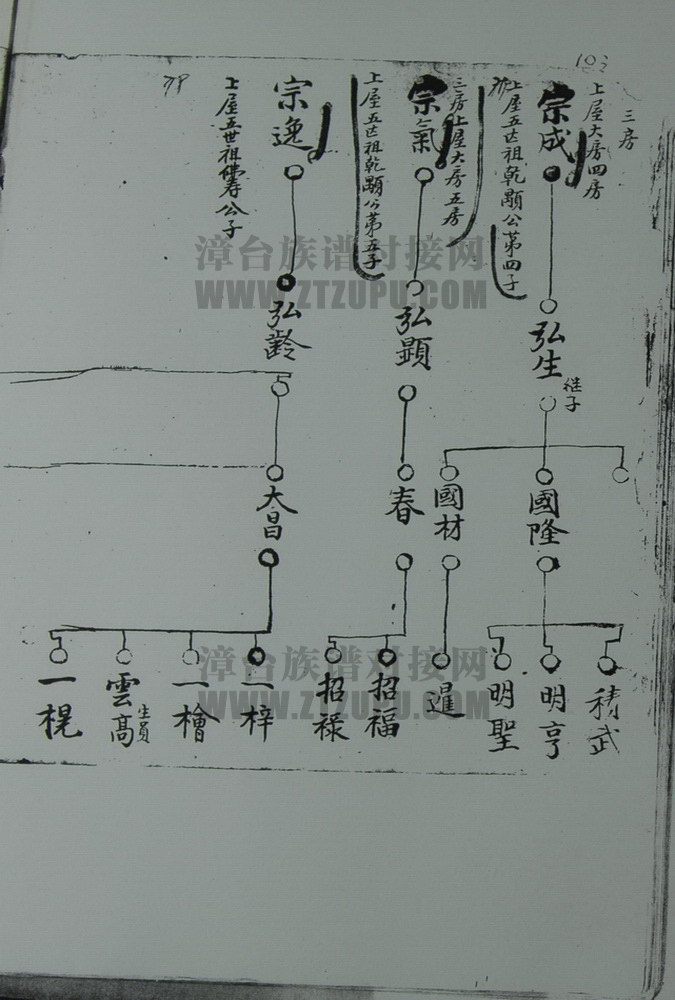 103
三房
上屋大房四房
宗成
上屋五世祖乾顯公第四子
弘生
继子
國隆
國材
積武
明亨
明聖
暹
三房上屋大房五房
宗氣
上屋五世祖乾顯公第五子
弘顯
春
招福
招祿
宗逸
上屋五世祖公子
弘齡
大昌
一梓
一檜
雲高
生員
一榥
漳台族谱对接网
WWW.ZTZUPU.COM
漳台族谱对接网
WWW.ZTZUPU.COM